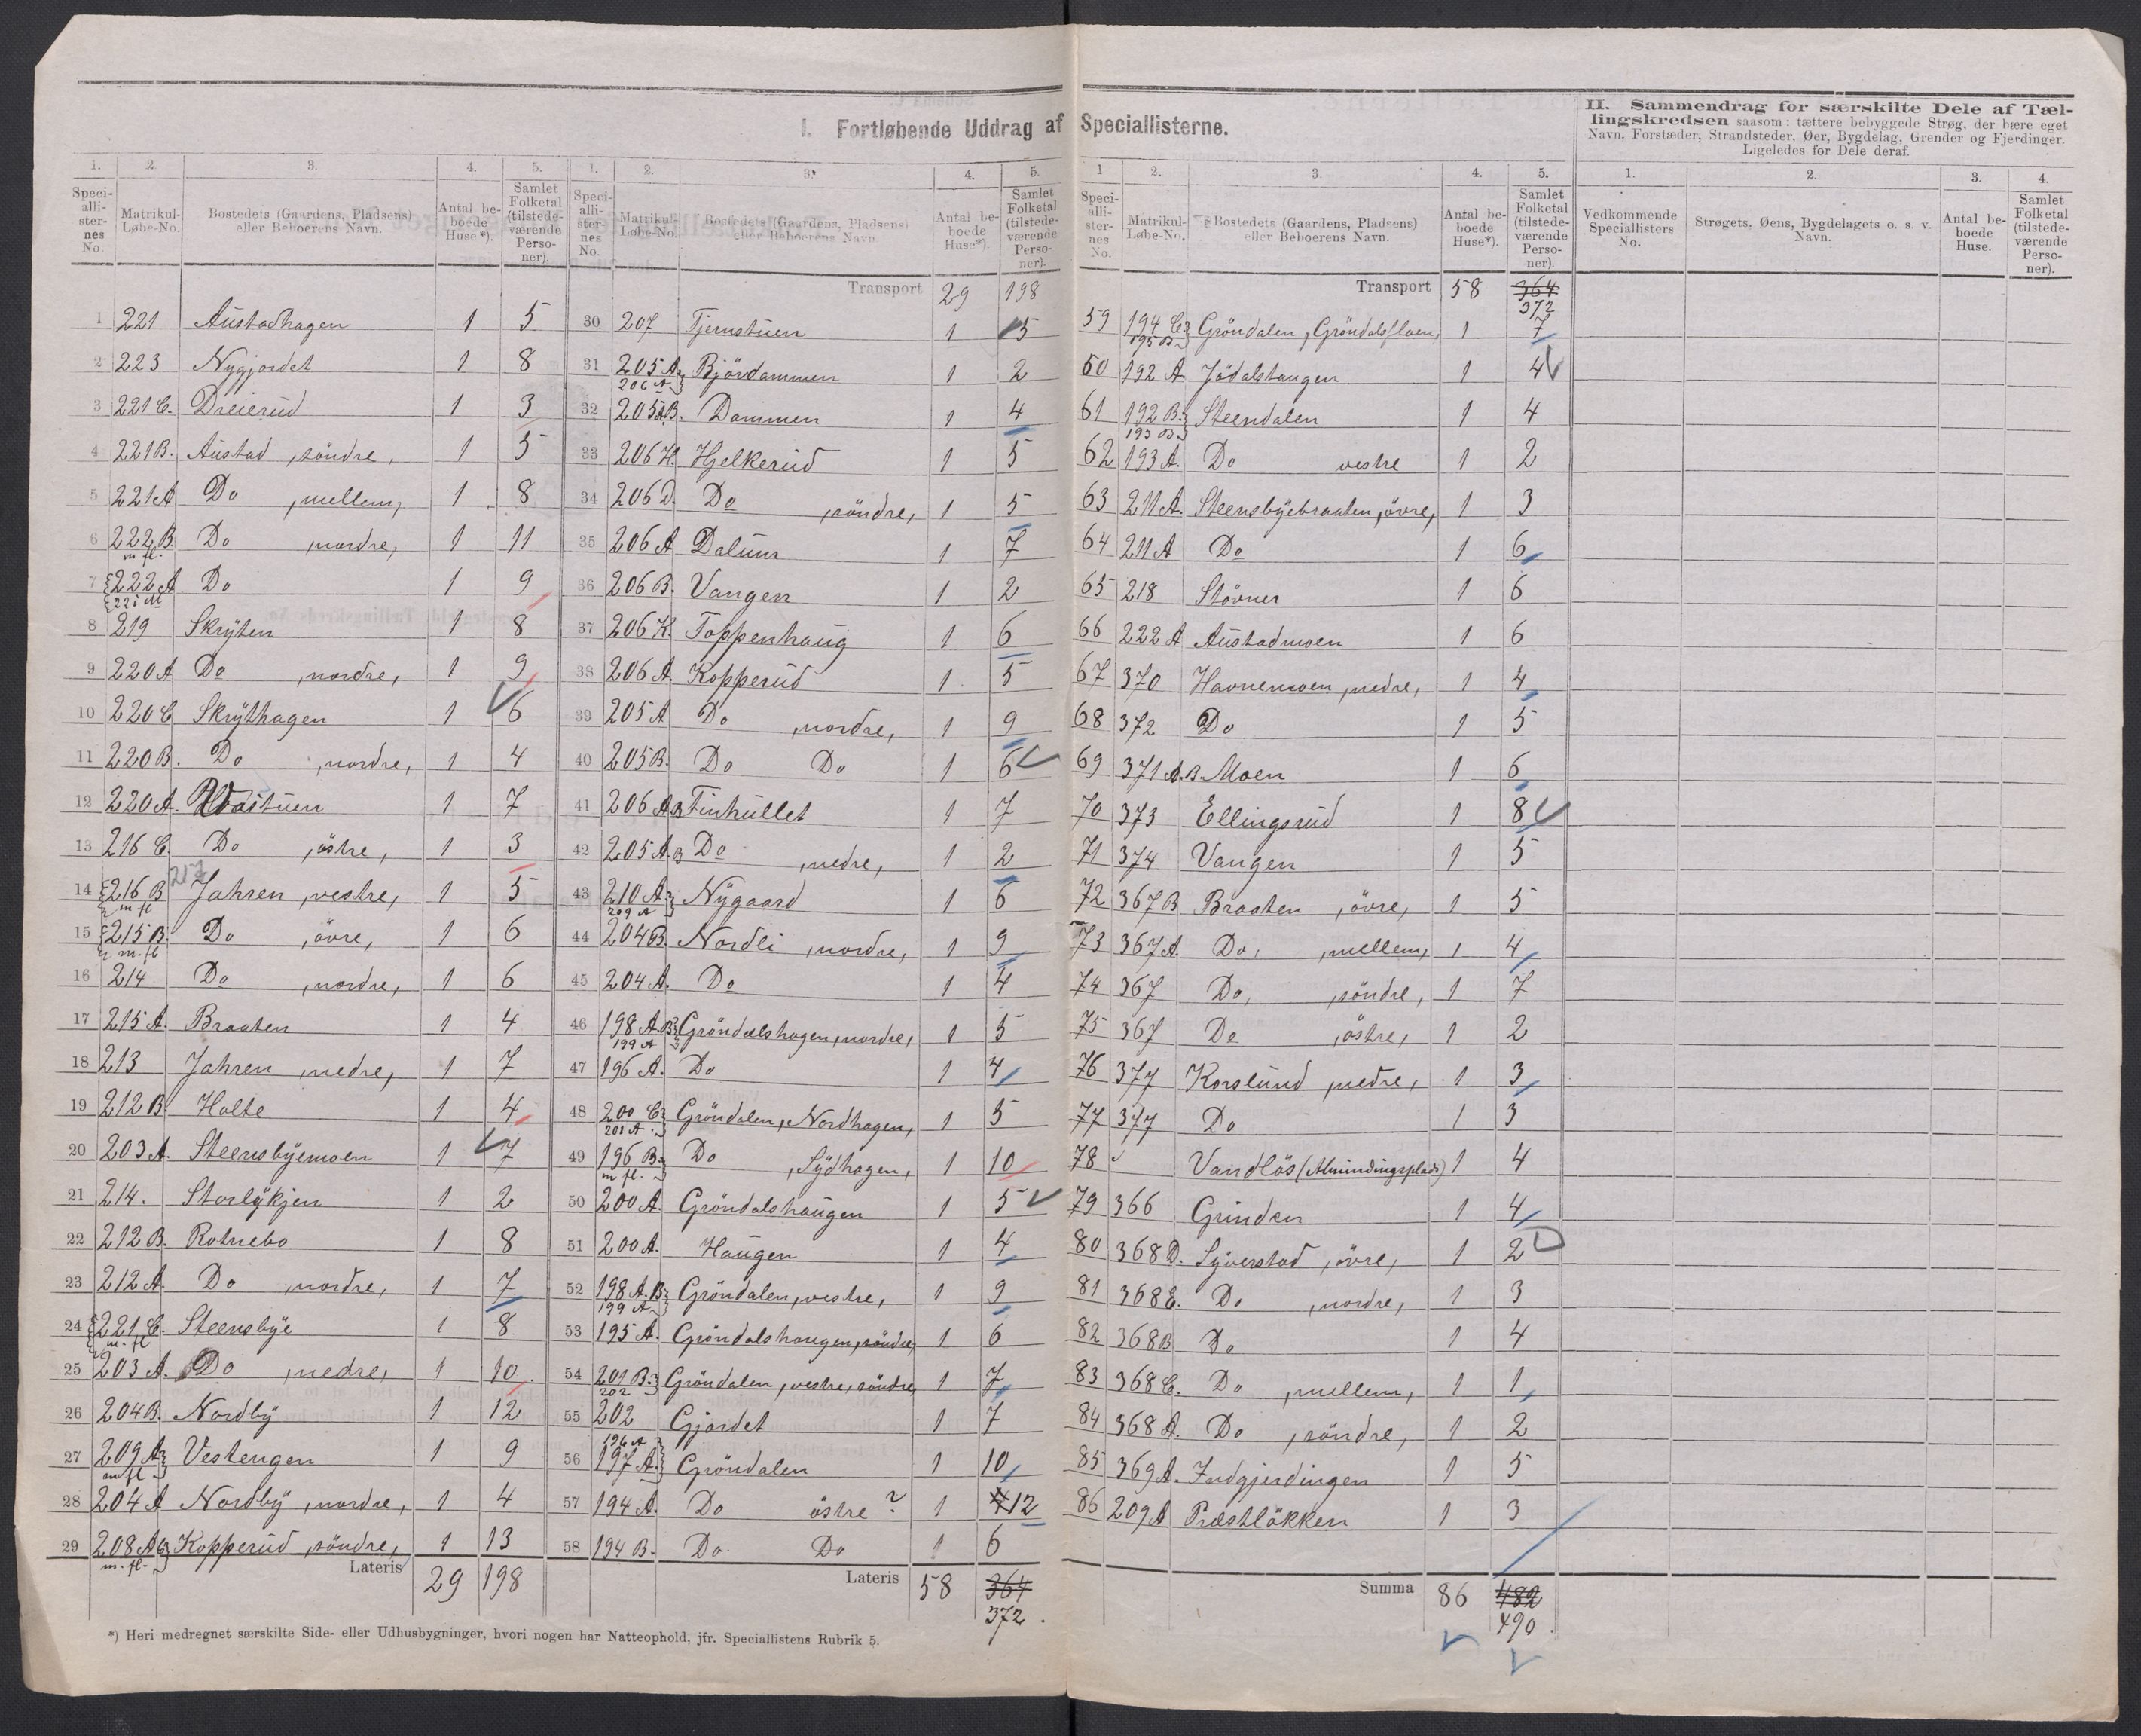 I. Fortløbende Uddrag af Speciallisterne.
1. 2. 3. 4. 5.
Speci-alli-ster-nes No. Matrikul-Løbe-No. Bostedets (Gaardens, Pladsens) eller Beboerens Navn. Antal be-boede Huse*). Samlet Folketal (tilstede-værende Perso-ner).
1 221 Austadhagen 1 5
2 223 Nygjordet 1 8
3 221 C. Dreierud 1 3
4 221 B. Austad, söndre, 1 5
5 221 A Do, mellem, 1 8
6 222 B. m fl. Do, nordre, 1 11
7 222 A Do 1 9
8 219 Skrÿten 1 8
9 220 A Do, nordre, 1 9
10 220 C Skrÿthagen 1 6
11 220 B. Do, nordre, 1 4
12 220 A. 1 7
13 216 C. Do, östre, 1 3
217
14 216 B m fl Jahren, vestre, 1 5
15 215 B. m. fl Do, övre, 1 6
16 214 Do, nordre, 1 6
17 215 A. Braaten 1 4
18 213 Jahren, nedre, 1 7
19 212 B Holte 1 4
20 203 A. Steensbÿemoen 1 7
21 214. Storlÿkjen 1 2
22 212 B. Rotnebo 1 8
23 212 A. Do, nordre, 1 7
24 221 C. m. fl Steensbÿe 1 8
25 203 A. Do, nedre, 1 10
26 204 B. Nordbÿ 1 12
27 209 A m fl Vestengen 1 9
28 204 A Nordbÿ, nordre, 1 4
29 208 AB m. fl. Kopperud, söndre, 1 13
Lateris 29 198
*) Heri medregnet særskilte Side- eller Udhusbygninger, hvori nogen har Natteophold, jfr. Speciallistens Rubrik 5.
1. 2. 3. 4. 5.
Speci-alli-ster-nes No. Matrikul-Løbe-No. Bostedets (Gaardens, Pladsens) eller Beboerens Navn. Antal be-boede Huse*). Samlet Folketal (tilstede-værende Perso-ner).
Transport 29 198
30 207 Tjernstuen 1 5
31 205 A. 206 A. Björdammen 1 2
32 205 B. Dammen 1 4
33 206 H. Hjelkerud 1 5
34 206 D. Do, söndre, 1 5
35 206 A Dalum 1 7
36 206 B. Vangen 1 2
37 206 K. Toppenhaug 1 6
38 206 A. Kopperud 1 5
39 205 A Do, nordre, 1 9
40 205 B. Do Do 1 6
41 206 AB Finhullet 1 7
42 205 A. B Do, nedre, 1 2
43 210 A. 209 A Nÿgaard 1 6
44 204 B. Nordli, nordre, 1 9
45 204 A. Do 1 4
46 198 A. B. 199 A Gröndalshagen, nordre, 1 5
47 196 A. Do 1 4
48 200 C. 201 A. Gröndalen, Nordhagen, 1 5
49 196 B. m fl. Do, Sÿdhagen, 1 10
50 200 A. Gröndalshaugen 1 5
51 200 A. Haugen 1 4
52 198 A. B. 199 A Gröndalen, vestre, 1 9
53 195 A. Gröndalshaugen, söndre, 1 6
54 201 B. 202 Gröndalen, vestre, söndre, 1 7
55 202 Gjördet 1 7
56 196 A 197 A. Gröndalen 1 10
57 194 A. Do östre ? 1 12
58 194 B. Do Do 1 6
Lateris 58 364
372.
1 2. 3. 4. 5.
Speci-alli-ster-nes No. Matrikul-Løbe-No. Bostedets (Gaardens, Pladsens) eller Beboerens Navn. Antal be-boede Huse*). Samlet Folketal (tilstede-værende Perso-ner).
Transport 58 364
372
59 194 C. 195 B. Gröndalen, Gröndalsflaen, 1 7
60 192 A. Jödalstangen 1 4
61 192 B. 193 B. Steendalen 1 4
62 193 A. Do vestre 1 2
63 211 A. Steensbÿebraaten, övre, 1 3
64 211 A Do 1 6
65 218 Stövner 1 6
66 222 A Austadmoen 1 6
67 370 Havnemoen, nedre, 1 4
68 372 Do 1 5
69 371 A. B. Moen 1 6
70 373 Ellingsrud 1 8
71 374 Vangen 1 5
72 367 B Braaten, övre, 1 5
73 367 A. Do, mellem, 1 4
74 367 Do, söndre, 1 7
75 367 Do östre, 1 2
76 377 Korslund, nedre, 1 3
77 377 Do 1 3
78 Vandlös (Almindingsplads) 1 4
79 366 Grinden 1 4
80 368 D. Sÿverstad, övre, 1 2
81 368 E. Do, nordre, 1 3
82 368 B Do 1 4
83 368 C. Do, mellem, 1 1
84 368 A. Do, söndre, 1 2
85 369 A. Indgjerdingen 1 5
86 209 A Præstlökken 1 3
Summa 86 482
490.
II. Sammendrag for særskilte Dele af Tæl-
lingskredsen saasom: tættere bebyggede Strøg, der bære eget
Navn. Forstæder, Strandsteder, Øer, Bygdelag, Grender og Fjerdinger.
Ligeledes for Dele deraf.
1. 2. 3. 4.
Vedkommende Speciallisters No. Strøgets, Øens, Bygdelagets o. s. v. Navn. Antal be-boede Huse. Samlet Folketal (tilstede-værende Perso-ner).